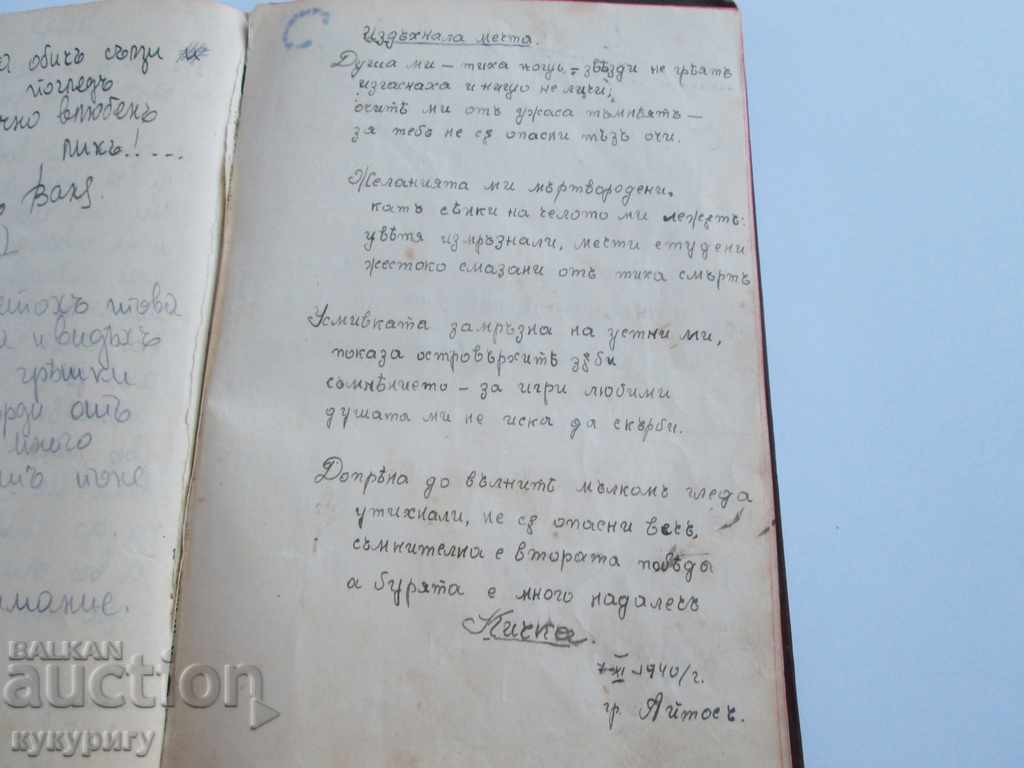 а обичъ сълзи
погледъ
чно влюбенъ
ликъ!....
това
и видѣхъ
грѣшки
отъ
много
мание.
Издъхнала мечта.
Душа ми – тиха нощь – звѣзди не грѣятъ
изгаснаха и нищо не личи,
очитѣ ми отъ ужаса тъмнѣятъ –
зя тебе не сѫ опасни тѣзъ очи.
Желанията ми мъртвородени,
катъ сѣнки на челото ми лежятъ:
цвѣтя измръзнали, мечти студени
жестоко смазани отъ тиха смърть
Усмивката замръзна на устни ми,
показа островърхитѣ зѫби
съмнѣнието – за игри любими
душата ми не иска да скърби.
Допрѣна до вълнитѣ мълкомъ гледа
утихнали, не сѫ опасни вечъ,
съмнителна е втората побѣды
а бурята е много надалечъ
Кичка.
XI 1940/г.
гр. Айтосъ.
BALKAN
auction
кукуригу